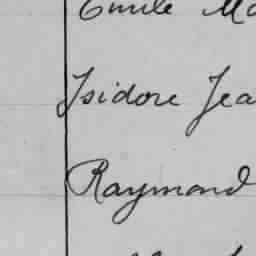 Emile Ma
Isidore Jea
Raymond